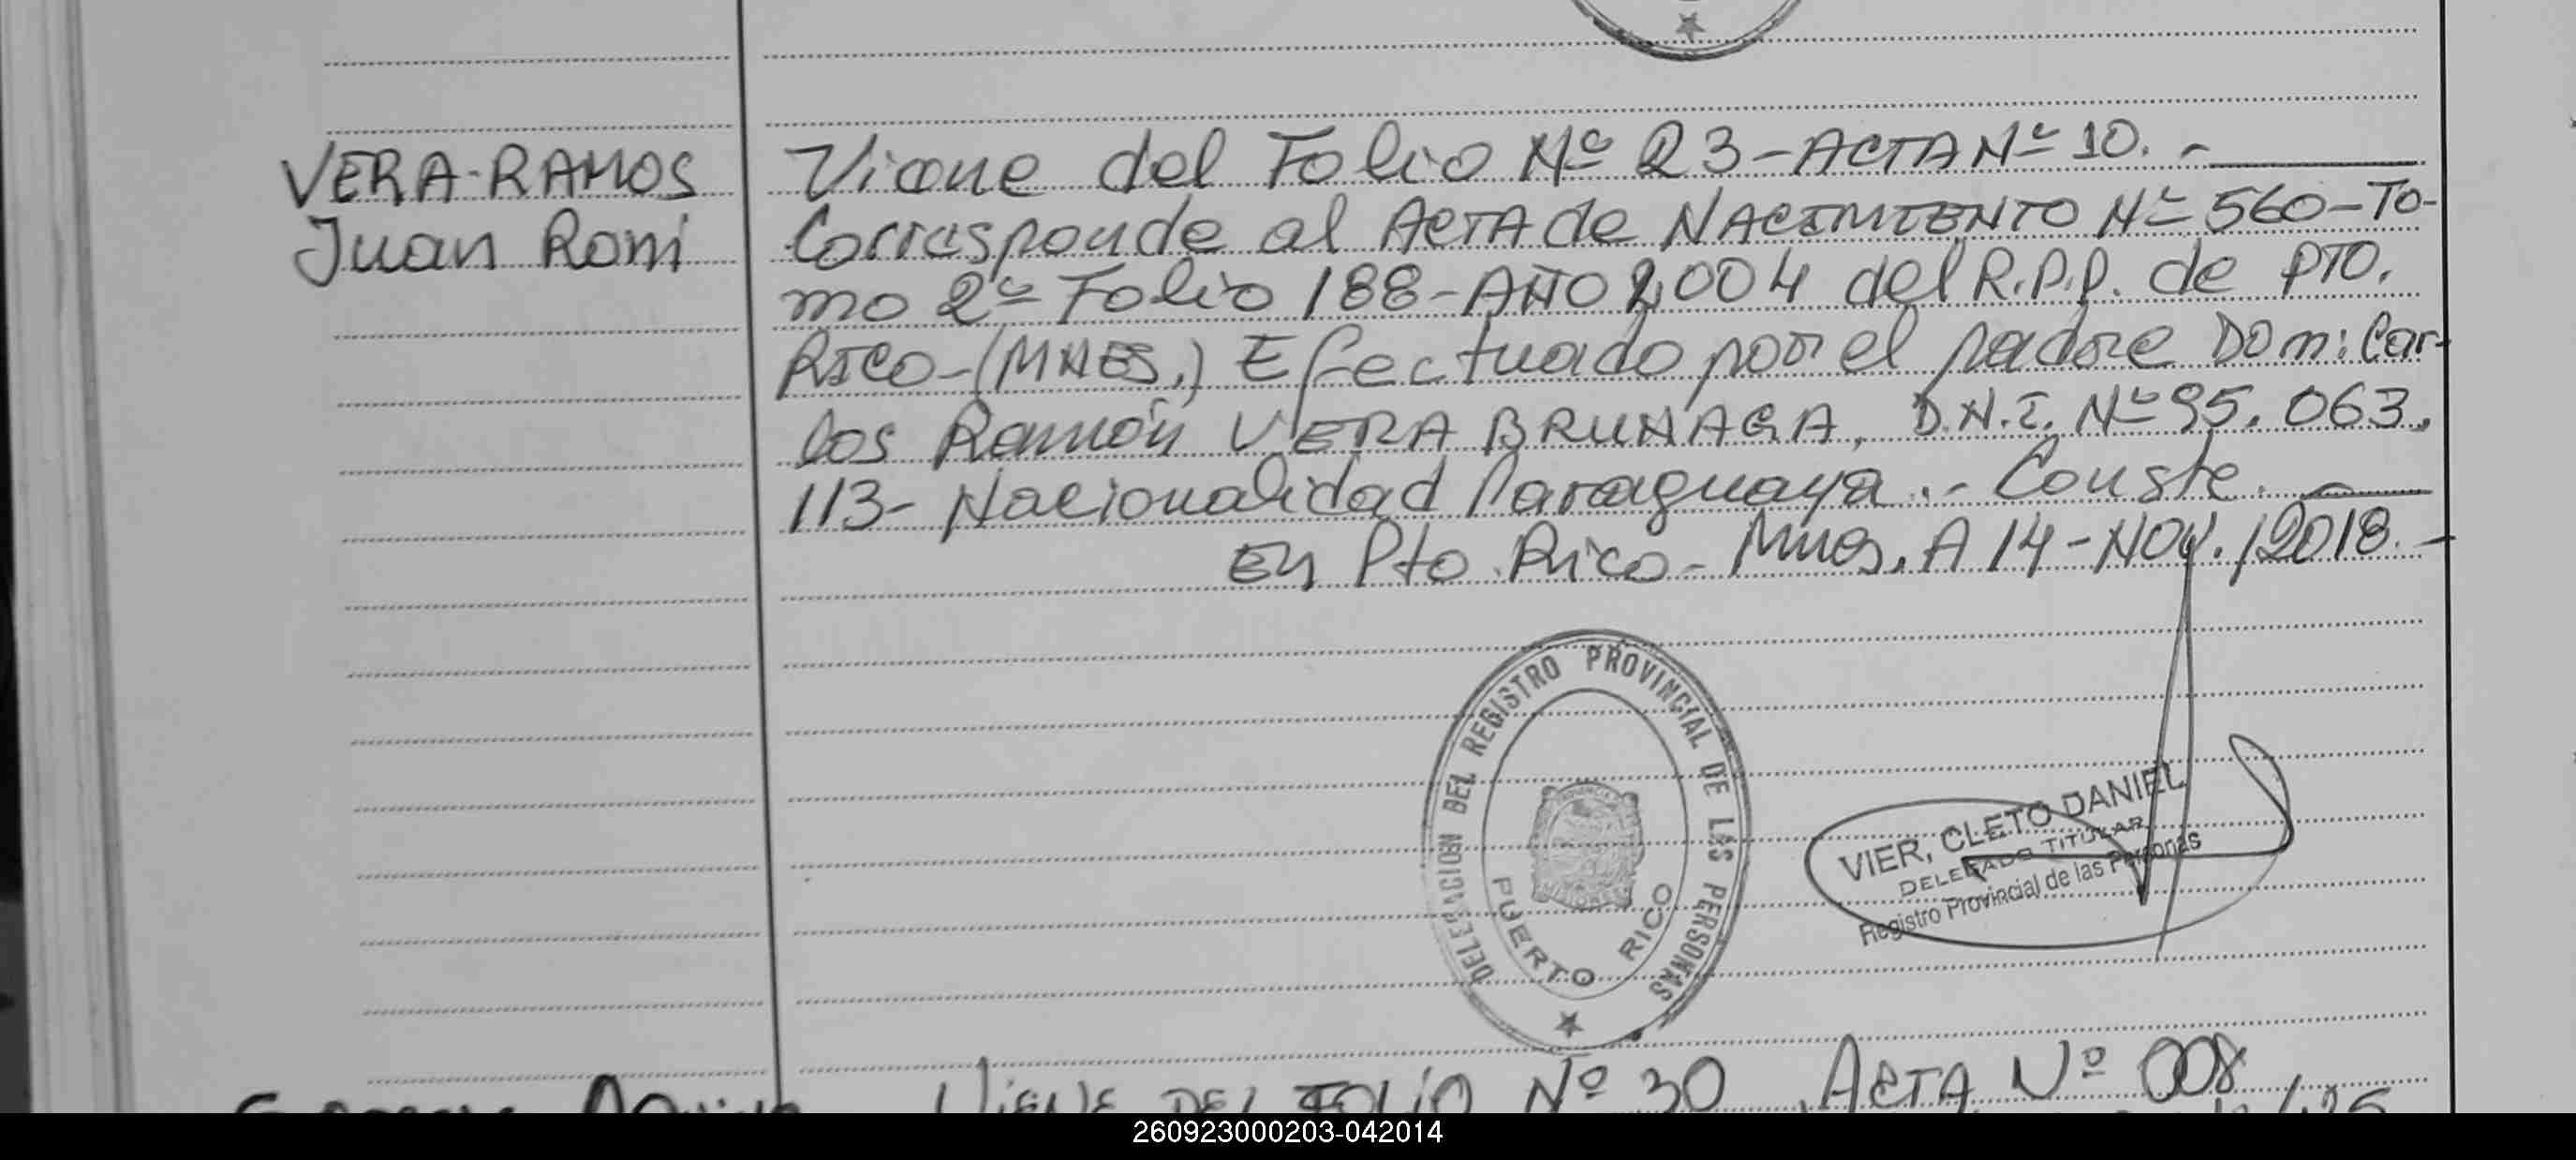 VERA-RAMOS
Juan Roni
Viene del Folio Nº 23-ACTA Nº 10. -
Corresponde al ACTA de NACIMIENTO Nº 560-To-
mo 2º Folio 188-AÑO 2004 del R.P.P. de PTO.
RICO-(MNES.) Efectuado por el padre Don: Car-
los Ramón VERA BRUNAGA, D.N.I. Nº 95.063.
113- Nacionalidad Paraguaya.- Conste.
En Pto. Rico- Mnes. A 14-NOV./2018.-
DELEGACION DEL REGISTRO PROVINCIAL DE LAS PERSONAS
PUERTO RICO
VIER, CLETO DANIEL
DELEGADO TITULAR
Registro Provincial de las Personas
VIENE DEL FOLIO Nº 30 ACTA Nº 008
260923000203-042014